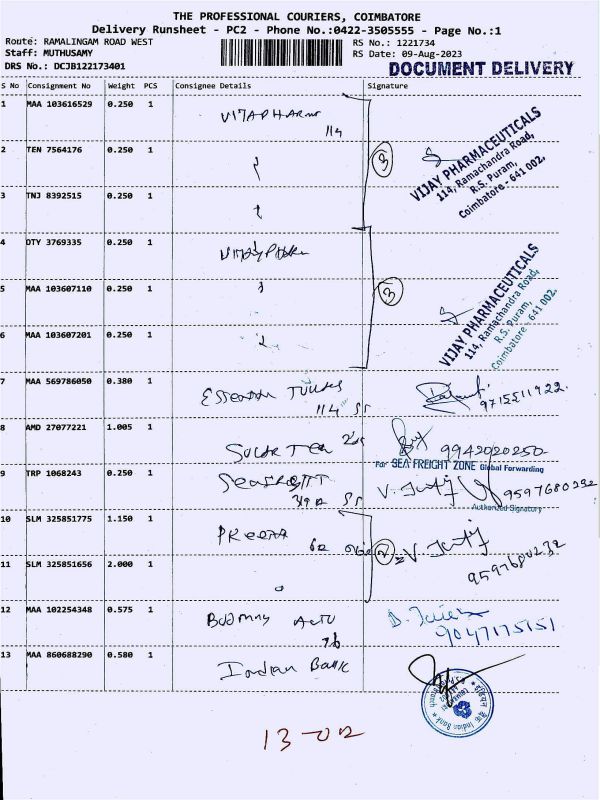 THE PROFESSIONAL COURIERS, COIMBATORE
Delivery Runsheet - PC2 - Phone No.:0422-3505555 - Page No.:1
Route: RAMALINGAM ROAD WEST
RS No.: 1221734
Staff: MUTHUSAMY
RS Date: 09-Aug-2023
DRS No.: DCJB122173401
DOCUMENT DELIVERY
S No Consignment No Weight PCS Consignee Details Signature
1 MAA 103616529 0.250 1
114
2 TEN 7564176 0.250 1
3
VIJAY PHARMACEUTICALS
114, Ramachandra Road,
R.S. Puram,
Coimbatore - 641 002.
3 TNJ 8392515 0.250 1
4 OTY 3769335 0.250 1
5 MAA 103607110 0.250 1
3
VIJAY PHARMACEUTICALS
114, Ramachandra Road,
R.S. Puram,
Coimbatore - 641 002.
6 MAA 103607201 0.250 1
7 MAA 569786050 0.380 1
114 SS
9715511922
8 AMD 27077221 1.005 1
9942020250
For SEA FREIGHT ZONE Global Forwarding
9 TRP 1068243 0.250 1
9597680232
Authorized Signatory
10 SLM 325851775 1.150 1
2
9597680232
11 SLM 325851656 2.000 1
12 MAA 102254348 0.575 1
9047175151
13 MAA 860688290 0.580 1 Indian Bank
Indian Bank